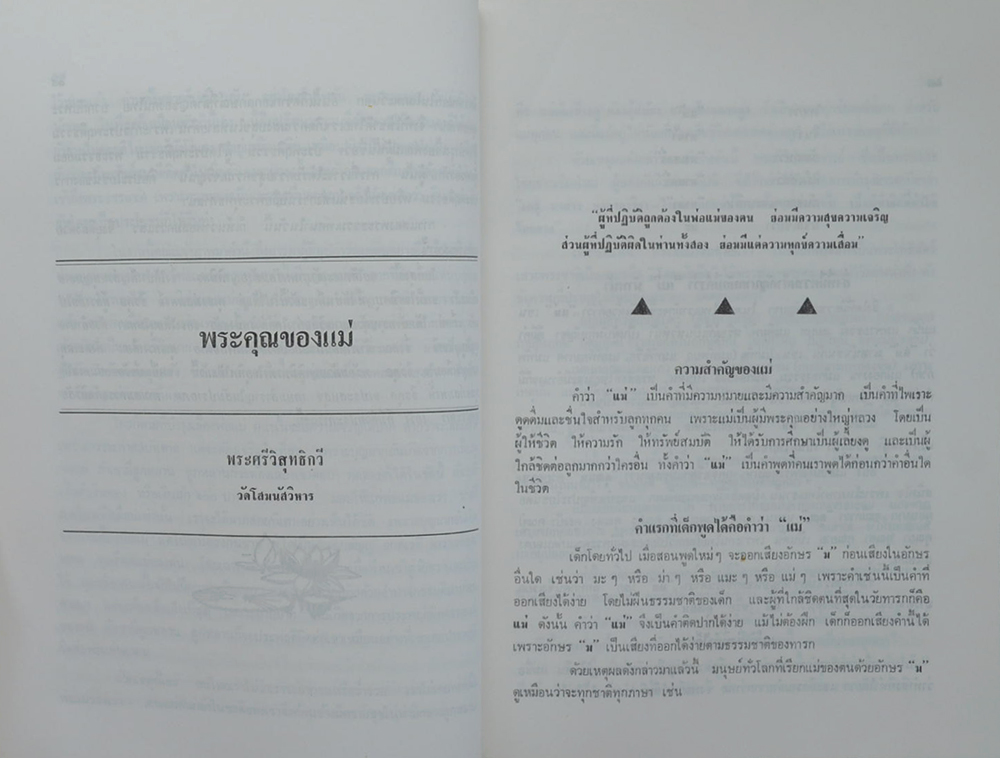 พระคุณของแม่
พระศรีวิสุทธิกวี
วัดโสมนัสวิหาร
"ผู้ที่ปฏิบัติถูกต้องในพ่อแม่ของตน ย่อมมีความสุขความเจริญ
ส่วนผู้ที่ปฏิบัติผิดในท่านทั้งสอง ย่อมมีแต่ความทุกข์ความเสื่อม"
ความสำคัญของแม่
คำว่า "แม่" เป็นคำที่มีความหมายและมีความสำคัญมาก เป็นคำที่ไพเราะ
ดูดดื่มและชื่นใจสำหรับลูกทุกคน เพราะแม่เป็นผู้มีพระคุณอย่างใหญ่หลวง โดยเป็น
ผู้ให้ชีวิต ให้ความรัก ให้ทรัพย์สมบัติ ให้ได้รับการศึกษาเป็นผู้เลี้ยงดู และเป็นผู้
ใกล้ชิดต่อลูกมากกว่าใครอื่น ทั้งคำว่า "แม่" เป็นคำพูดที่คนเราพูดได้ก่อนกว่าคำอื่นใด
ในชีวิต
คำแรกที่เด็กพูดได้คือคำว่า "แม่"
เด็กโดยทั่วไป เมื่อสอนพูดใหม่ๆ จะออกเสียงอักษร "ม" ก่อนเสียงในอักษร
อื่นใด เช่นว่า มะๆ หรือ ม่าๆ หรือ แมะๆ หรือ แม่ๆ เพราะคำเช่นนี้เป็นคำที่
ออกเสียงได้ง่าย โดยไม่ฝืนธรรมชาติของเด็ก และผู้ที่ใกล้ชิดตนที่สุดในวัยทารกก็คือ
แม่ ดังนั้น คำว่า "แม่" จึงเป็นคำติดปากได้ง่าย แม้ไม่ต้องฝึก เด็กก็ออกเสียงคำนี้ได้
เพราะอักษร "ม" เป็นเสียงที่ออกได้ง่ายตามธรรมชาติของทารก
ด้วยเหตุผลดังกล่าวมาแล้วนี้ มนุษย์ทั่วโลกที่เรียกแม่ของตนด้วยอักษร "ม"
ดูเหมือนว่าจะทุกชาติทุกภาษา เช่น